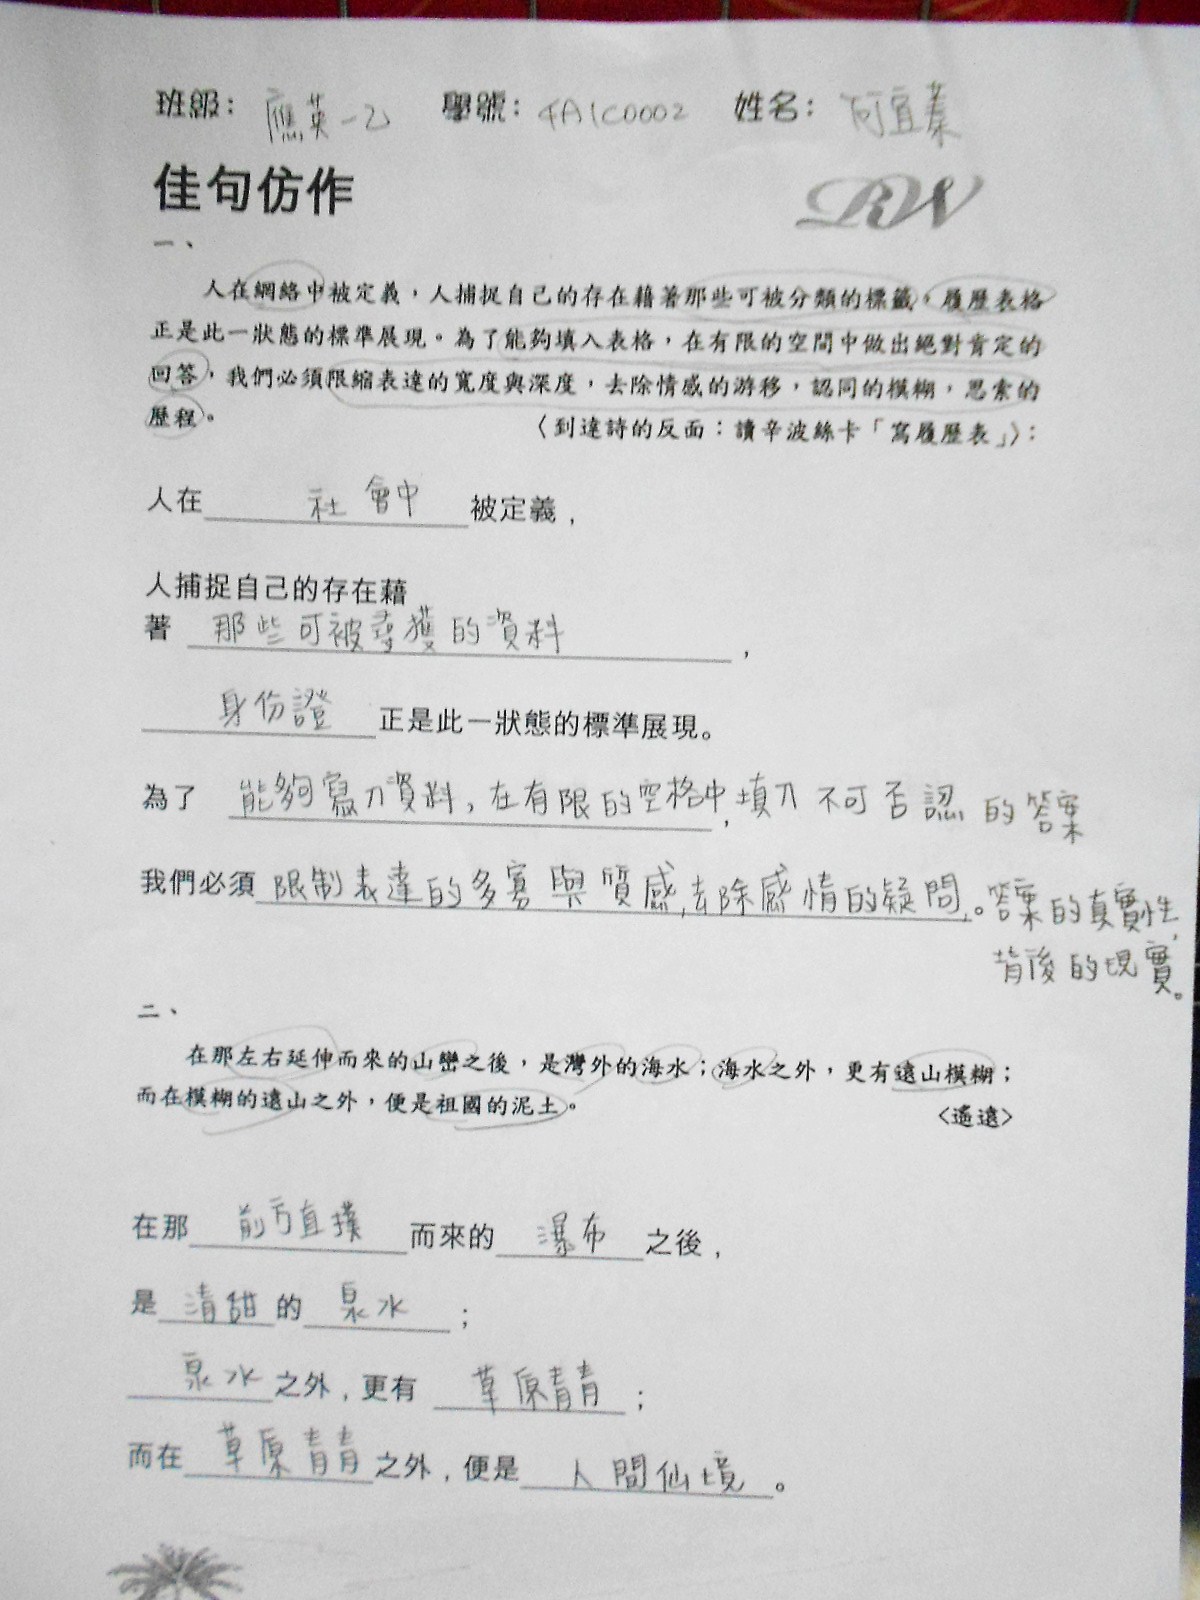 班級：應英一乙 學號：4A1C0002 姓名：何宜蓁
佳句仿作
RW
一、
人在網絡中被定義，人捕捉自己的存在藉著那些可被分類的標籤。履歷表格
正是此一狀態的標準展現。為了能夠填入表格，在有限的空間中做出絕對肯定的
回答，我們必須限縮表達的寬度與深度，去除情感的游移，認同的模糊，思索的
歷程。 〈到達詩的反面：讀辛波絲卡「寫履歷表」〉：
人在 社會中 被定義，
人捕捉自己的存在藉
著 那些可被尋獲的資料，
身份證 正是此一狀態的標準展現。
為了 能夠寫入資料，在有限的空格中，填入不可否認的答案
我們必須 限制表達的多寡與質感，去除感情的疑問，。答案的真實性，
背後的現實。
二、
在那左右延伸而來的山巒之後，是灣外的海水；海水之外，更有遠山模糊；
而在模糊的遠山之外，便是祖國的泥土。
〈遙遠〉
在那 前方直撲 而來的 瀑布 之後，
是 清甜 的 泉水；
泉水 之外，更有 草原青青；
而在 草原青青 之外，便是 人間仙境。